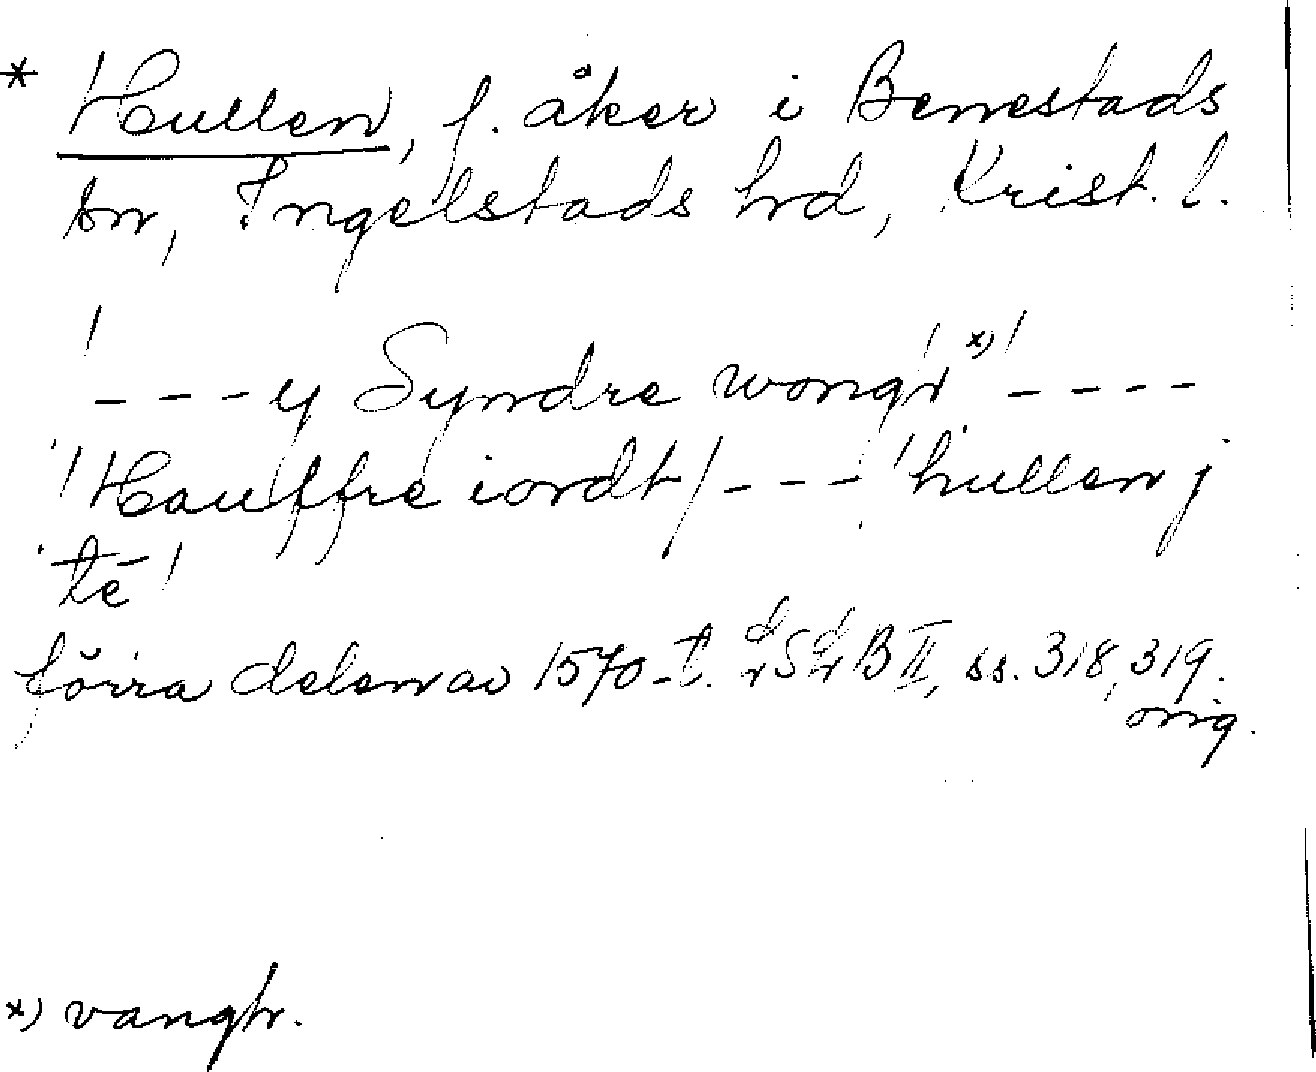 * Hullen, f. åker i Benestads
sn, Ingelstads hrd, Krist. l.
' - - - y Syndre wongh x) ' - - - -
' Hauffre iordt / - - - ' hullen j
tē '
förra delen av 1570-t. B II, ss. 318, 319.
orig.
x) vangh.